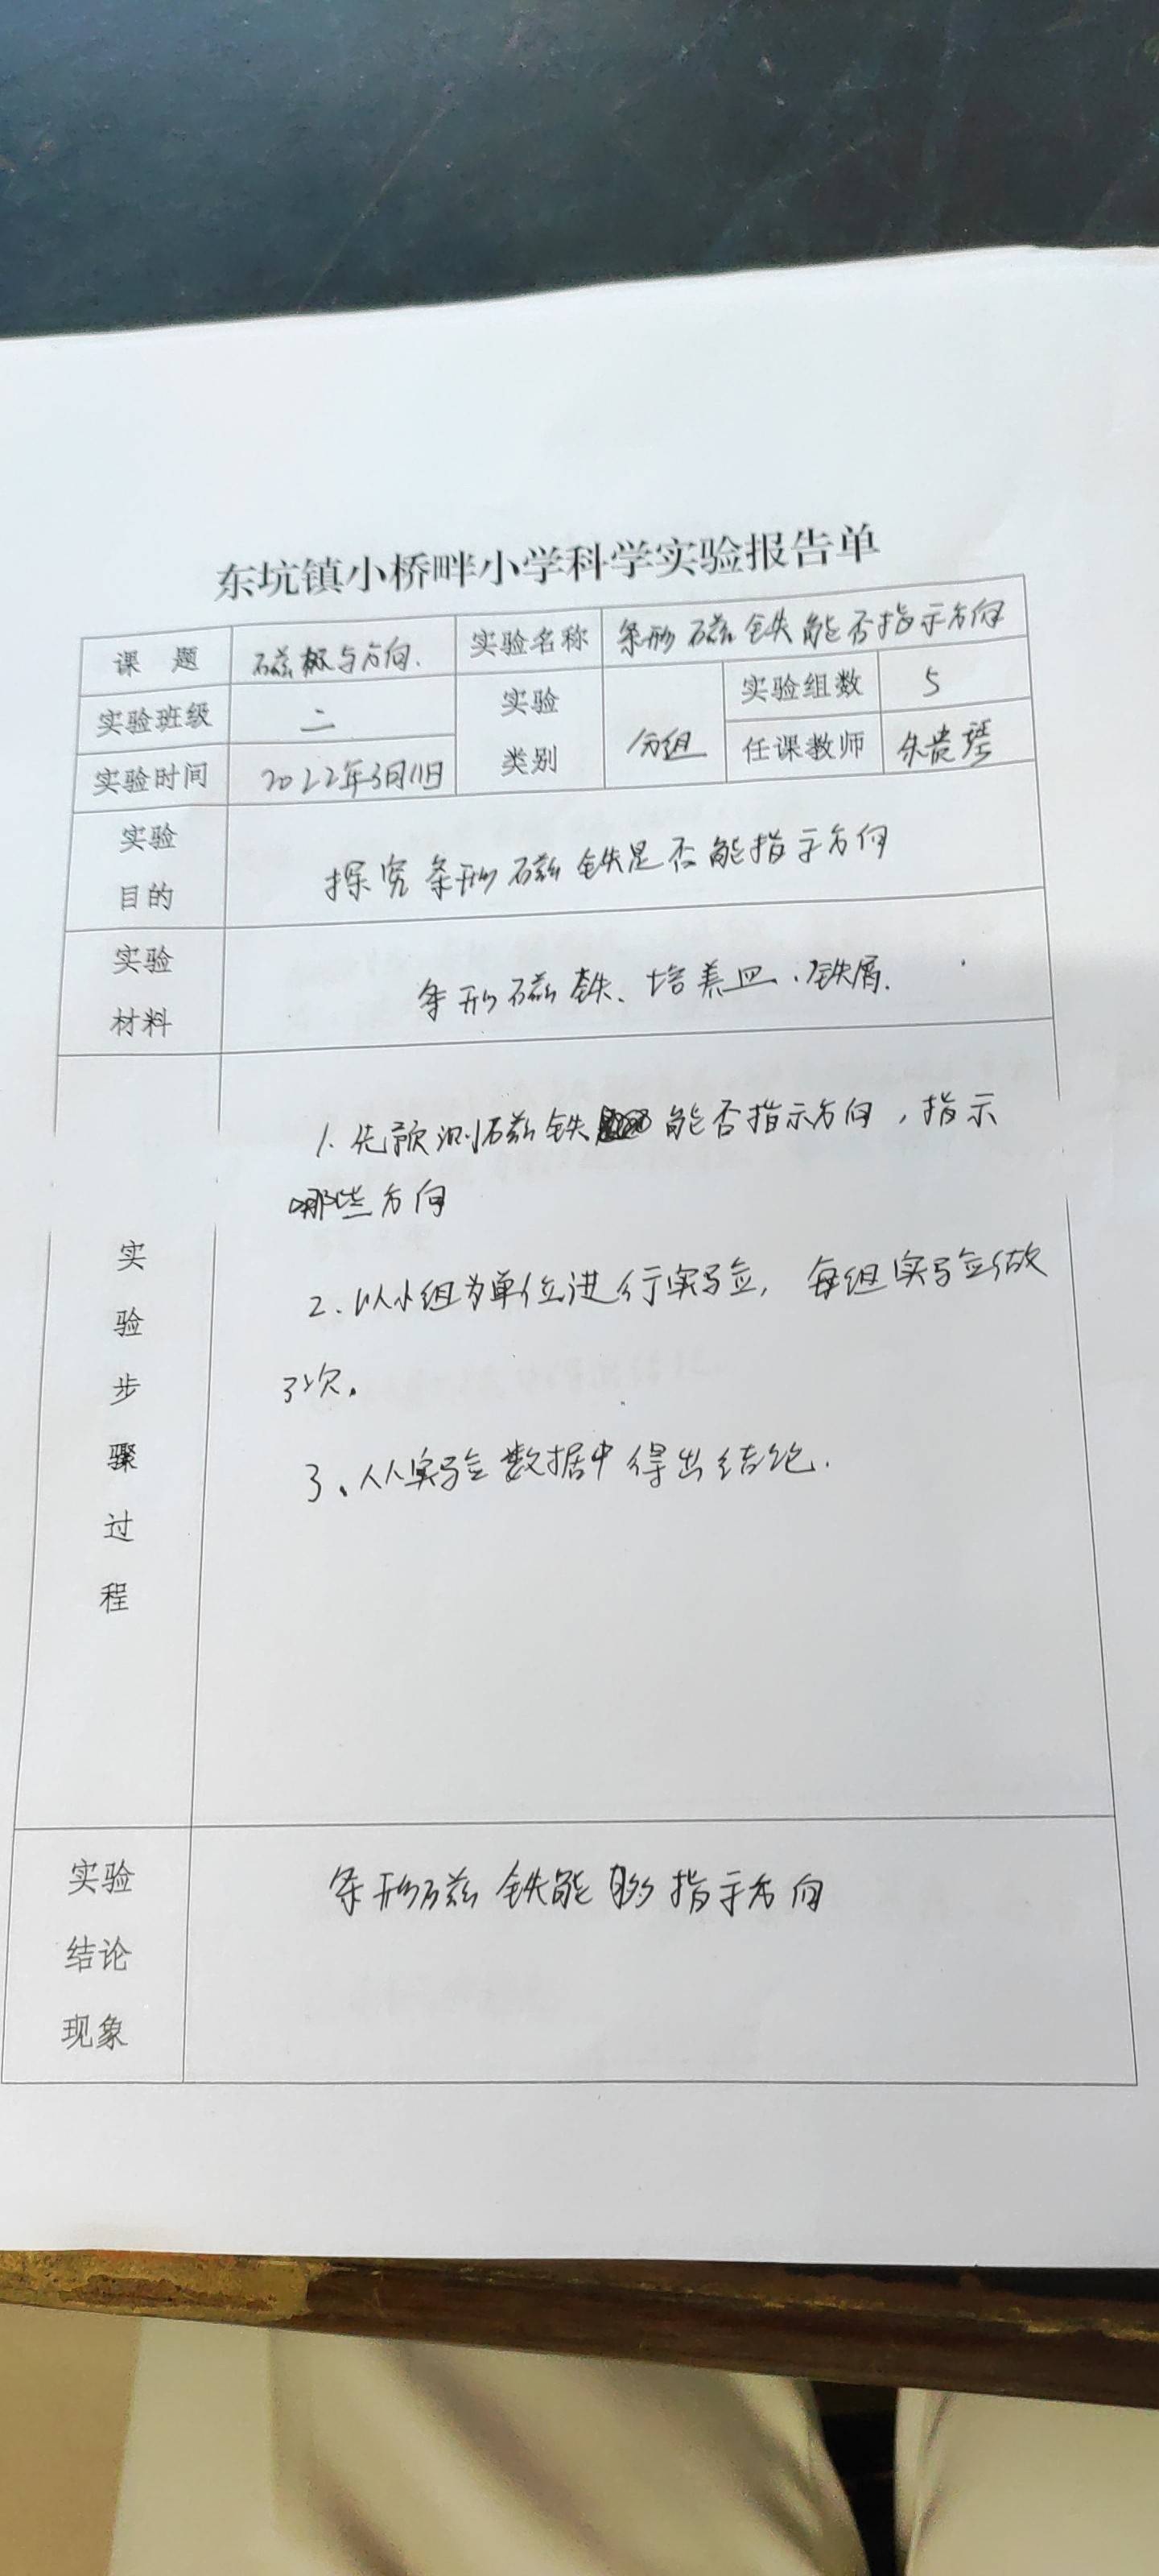 东坑镇小桥畔小学科学实验报告单
课 题 磁极与方向. 实验名称 条形磁铁能否指示方向
实验班级 二 实验类别 分组 实验组数 5
实验时间 2022年3月11日 任课教师
实验目的 探究条形磁铁是否能指示方向
实验材料 条形磁铁、培养皿、铁屑.
实验步骤过程
1. 先预测磁铁能否指示方向，指示
哪些方向
2. 以小组为单位进行实验，每组实验做
3次。
3、从实验数据中得出结论.
实验结论现象 条形磁铁能够指示方向